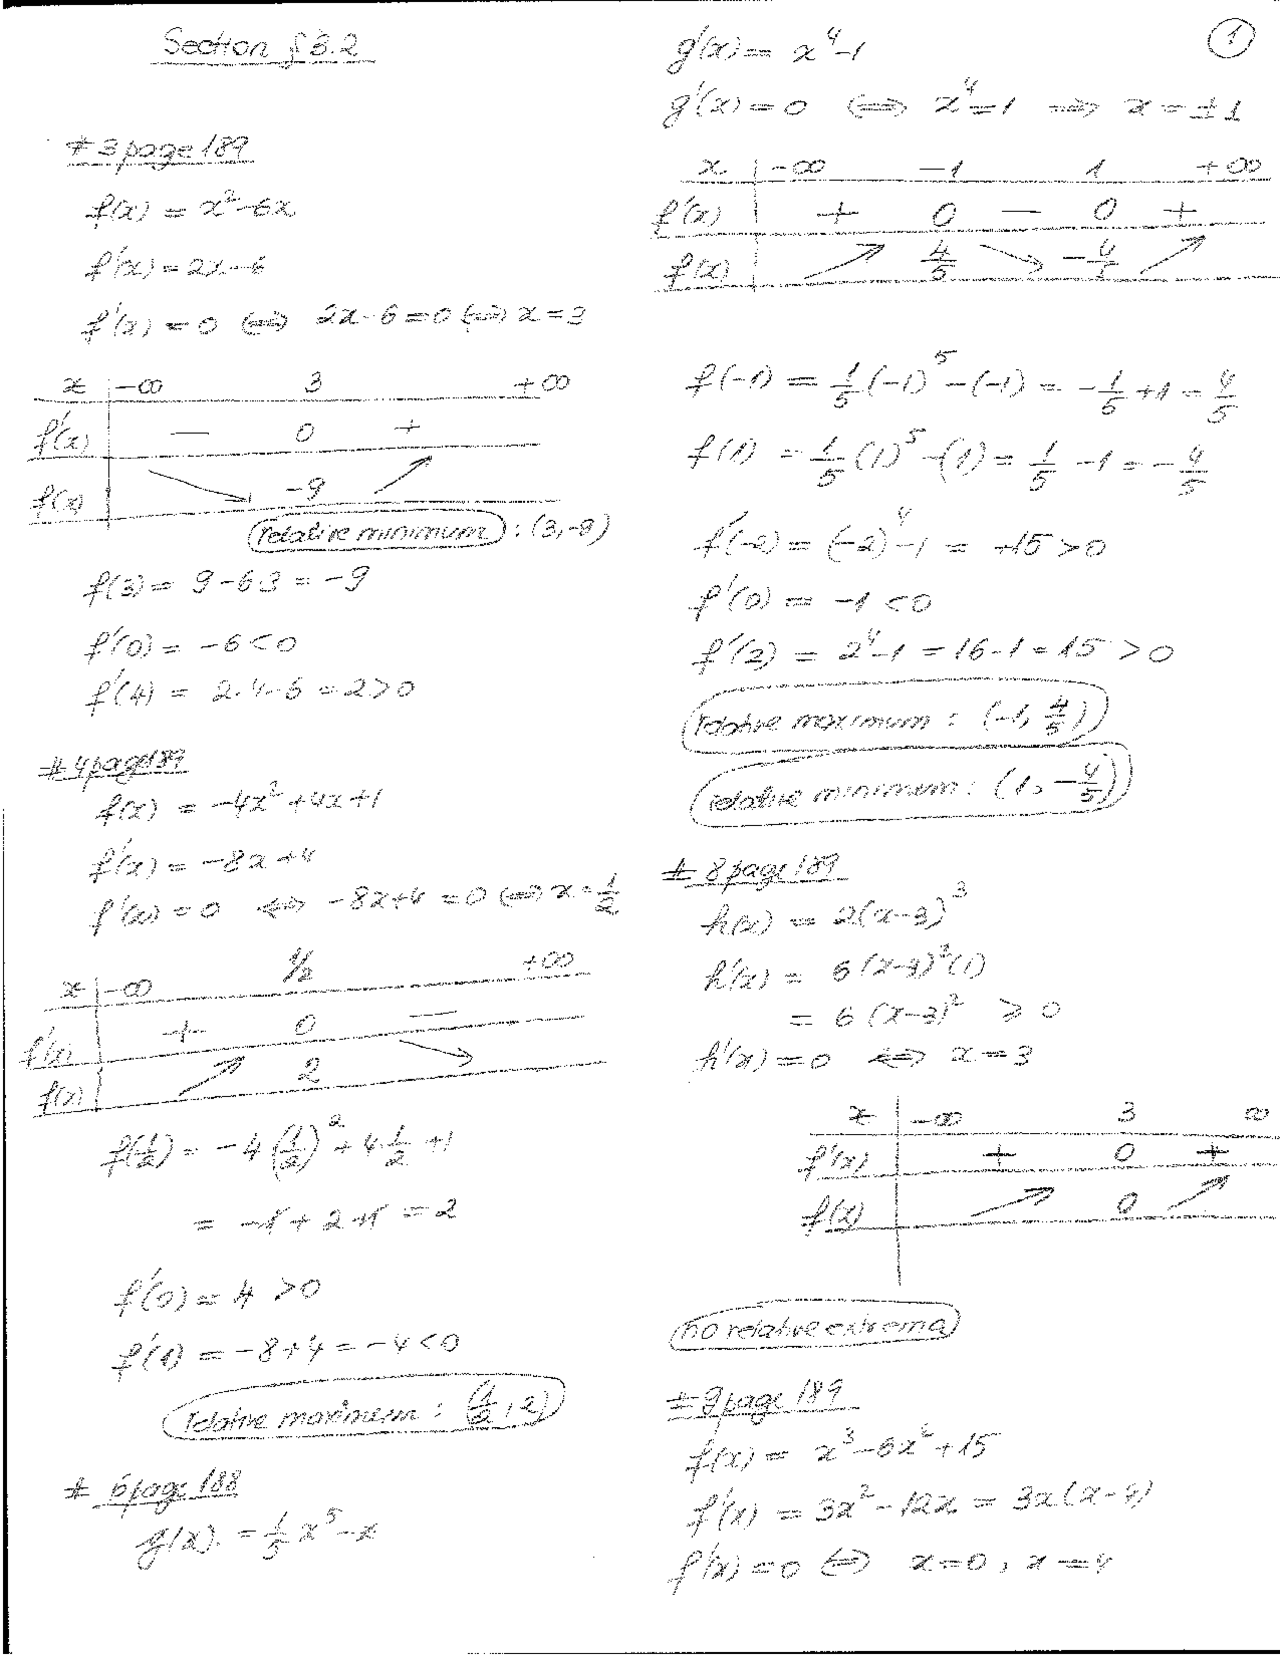 Section § 3.2
# 3 page 189
f(x) = x² - 6x
f'(x) = 2x - 6
f'(x) = 0 ⟺ 2x - 6 = 0 ⟺ x = 3
x | -∞ 3 +∞
f'(x) | — 0 +
f(x) | ↘ -9 ↗
relative minimum : (3, -9)
f(3) = 9 - 6.3 = -9
f'(0) = -6 < 0
f'(4) = 2.4 - 6 = 2 > 0
# 4 page 189
f(x) = -4x² + 4x + 1
f'(x) = -8x + 4
f'(x) = 0 ⟺ -8x + 4 = 0 ⟺ x = 1/2
x | -∞ 1/2 +∞
f'(x) | + 0 —
f(x) | ↗ 2 ↘
f(1/2) = -4 (1/2)² + 4 1/2 + 1
= -1 + 2 + 1 = 2
f'(0) = 4 > 0
f'(1) = -8 + 4 = -4 < 0
relative maximum : (1/2, 2)
# 6 page 188
g(x) = 1/5 x⁵ - x
①
g'(x) = x⁴ - 1
g'(x) = 0 ⟺ x⁴ = 1 ⟹ x = ±1
x | -∞ -1 1 +∞
f'(x) | + 0 — 0 +
f(x) | ↗ 4/5 ↘ -4/5 ↗
f(-1) = 1/5 (-1)⁵ - (-1) = -1/5 + 1 = 4/5
f(1) = 1/5 (1)⁵ - (1) = 1/5 - 1 = -4/5
f'(-2) = (-2)⁴ - 1 = +15 > 0
f'(0) = -1 < 0
f'(2) = 2⁴ - 1 = 16 - 1 = 15 > 0
relative maximum : (-1, 4/5)
relative minimum : (1, -4/5)
# 8 page 189
h(x) = 2(x-3)³
h'(x) = 6(x-3)²(1)
= 6(x-3)² ⩾ 0
h'(x) = 0 ⟺ x = 3
x | -∞ 3 ∞
f'(x) | + 0 +
f(x) | ↗ 0 ↗
no relative extrema
# 9 page 189
f(x) = x³ - 6x² + 15
f'(x) = 3x² - 12x = 3x(x-4)
f'(x) = 0 ⟺ x = 0, x = 4